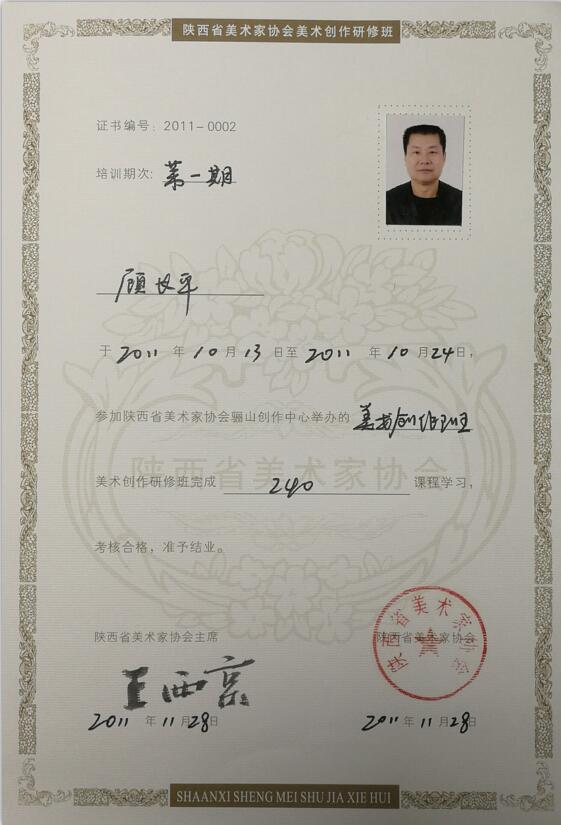 陕西省美术家协会美术创作研修班
证书编号：2011-0002
培训期次：第一期
顾长平
于 2011 年 10 月 13 日至 2011 年 10 月 24 日，
参加陕西省美术家协会骊山创作中心举办的 美术创作班
陕西省美术家协会
美术创作研修班完成 240 课程学习，
考核合格，准予结业。
陕西省美术家协会主席
陕西省美术家协会
陕西省美术家协会
王西京
2011 年 11 月 28 日
2011 年 11 月 28 日
SHAANXI SHENG MEI SHU JIA XIE HUI